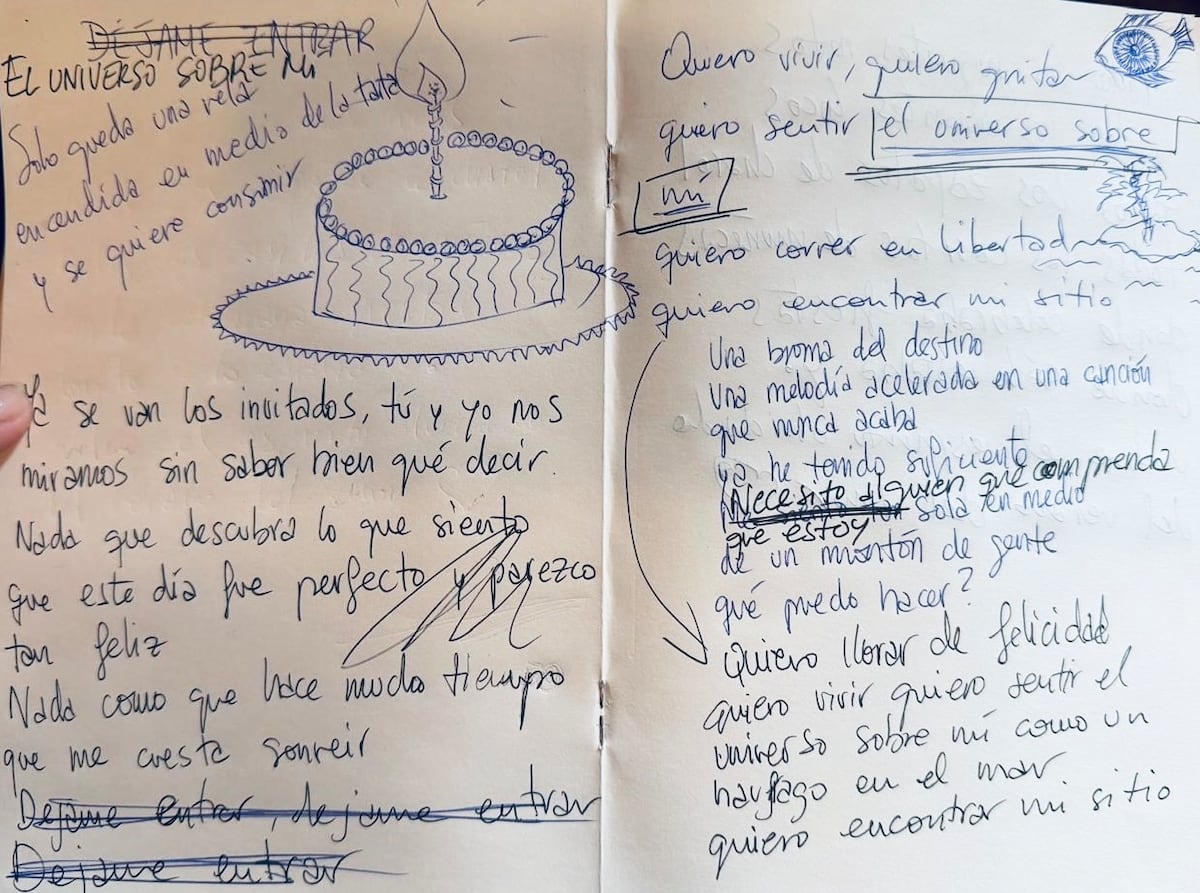 DÉJAME ENTRAR
EL UNIVERSO SOBRE MI
Solo queda una vela
encendida en medio de la tarta
y se quiere consumir
Ya se van los invitados, tú y yo nos
miramos sin saber bien qué decir.
Nada que descubra lo que siento
que este día fue perfecto y parezco
tan feliz
Nada como que hace mucho tiempo
que me cuesta sonreir
Dejame entrar, dejame entrar
Dejame entrar
Quiero vivir, quiero gritar
quiero sentir el universo sobre
mí
quiero correr en libertad
quiero encontrar mi sitio
Una broma del destino
Una melodía acelerada en una canción
que nunca acaba
ya he tenido suficiente
Necesito alguien que comprenda
que estoy sola en medio
de un montón de gente
qué puedo hacer?
Quiero llorar de felicidad
quiero vivir quiero sentir el
universo sobre mí como un
naufrago en el mar
quiero encontrar mi sitio